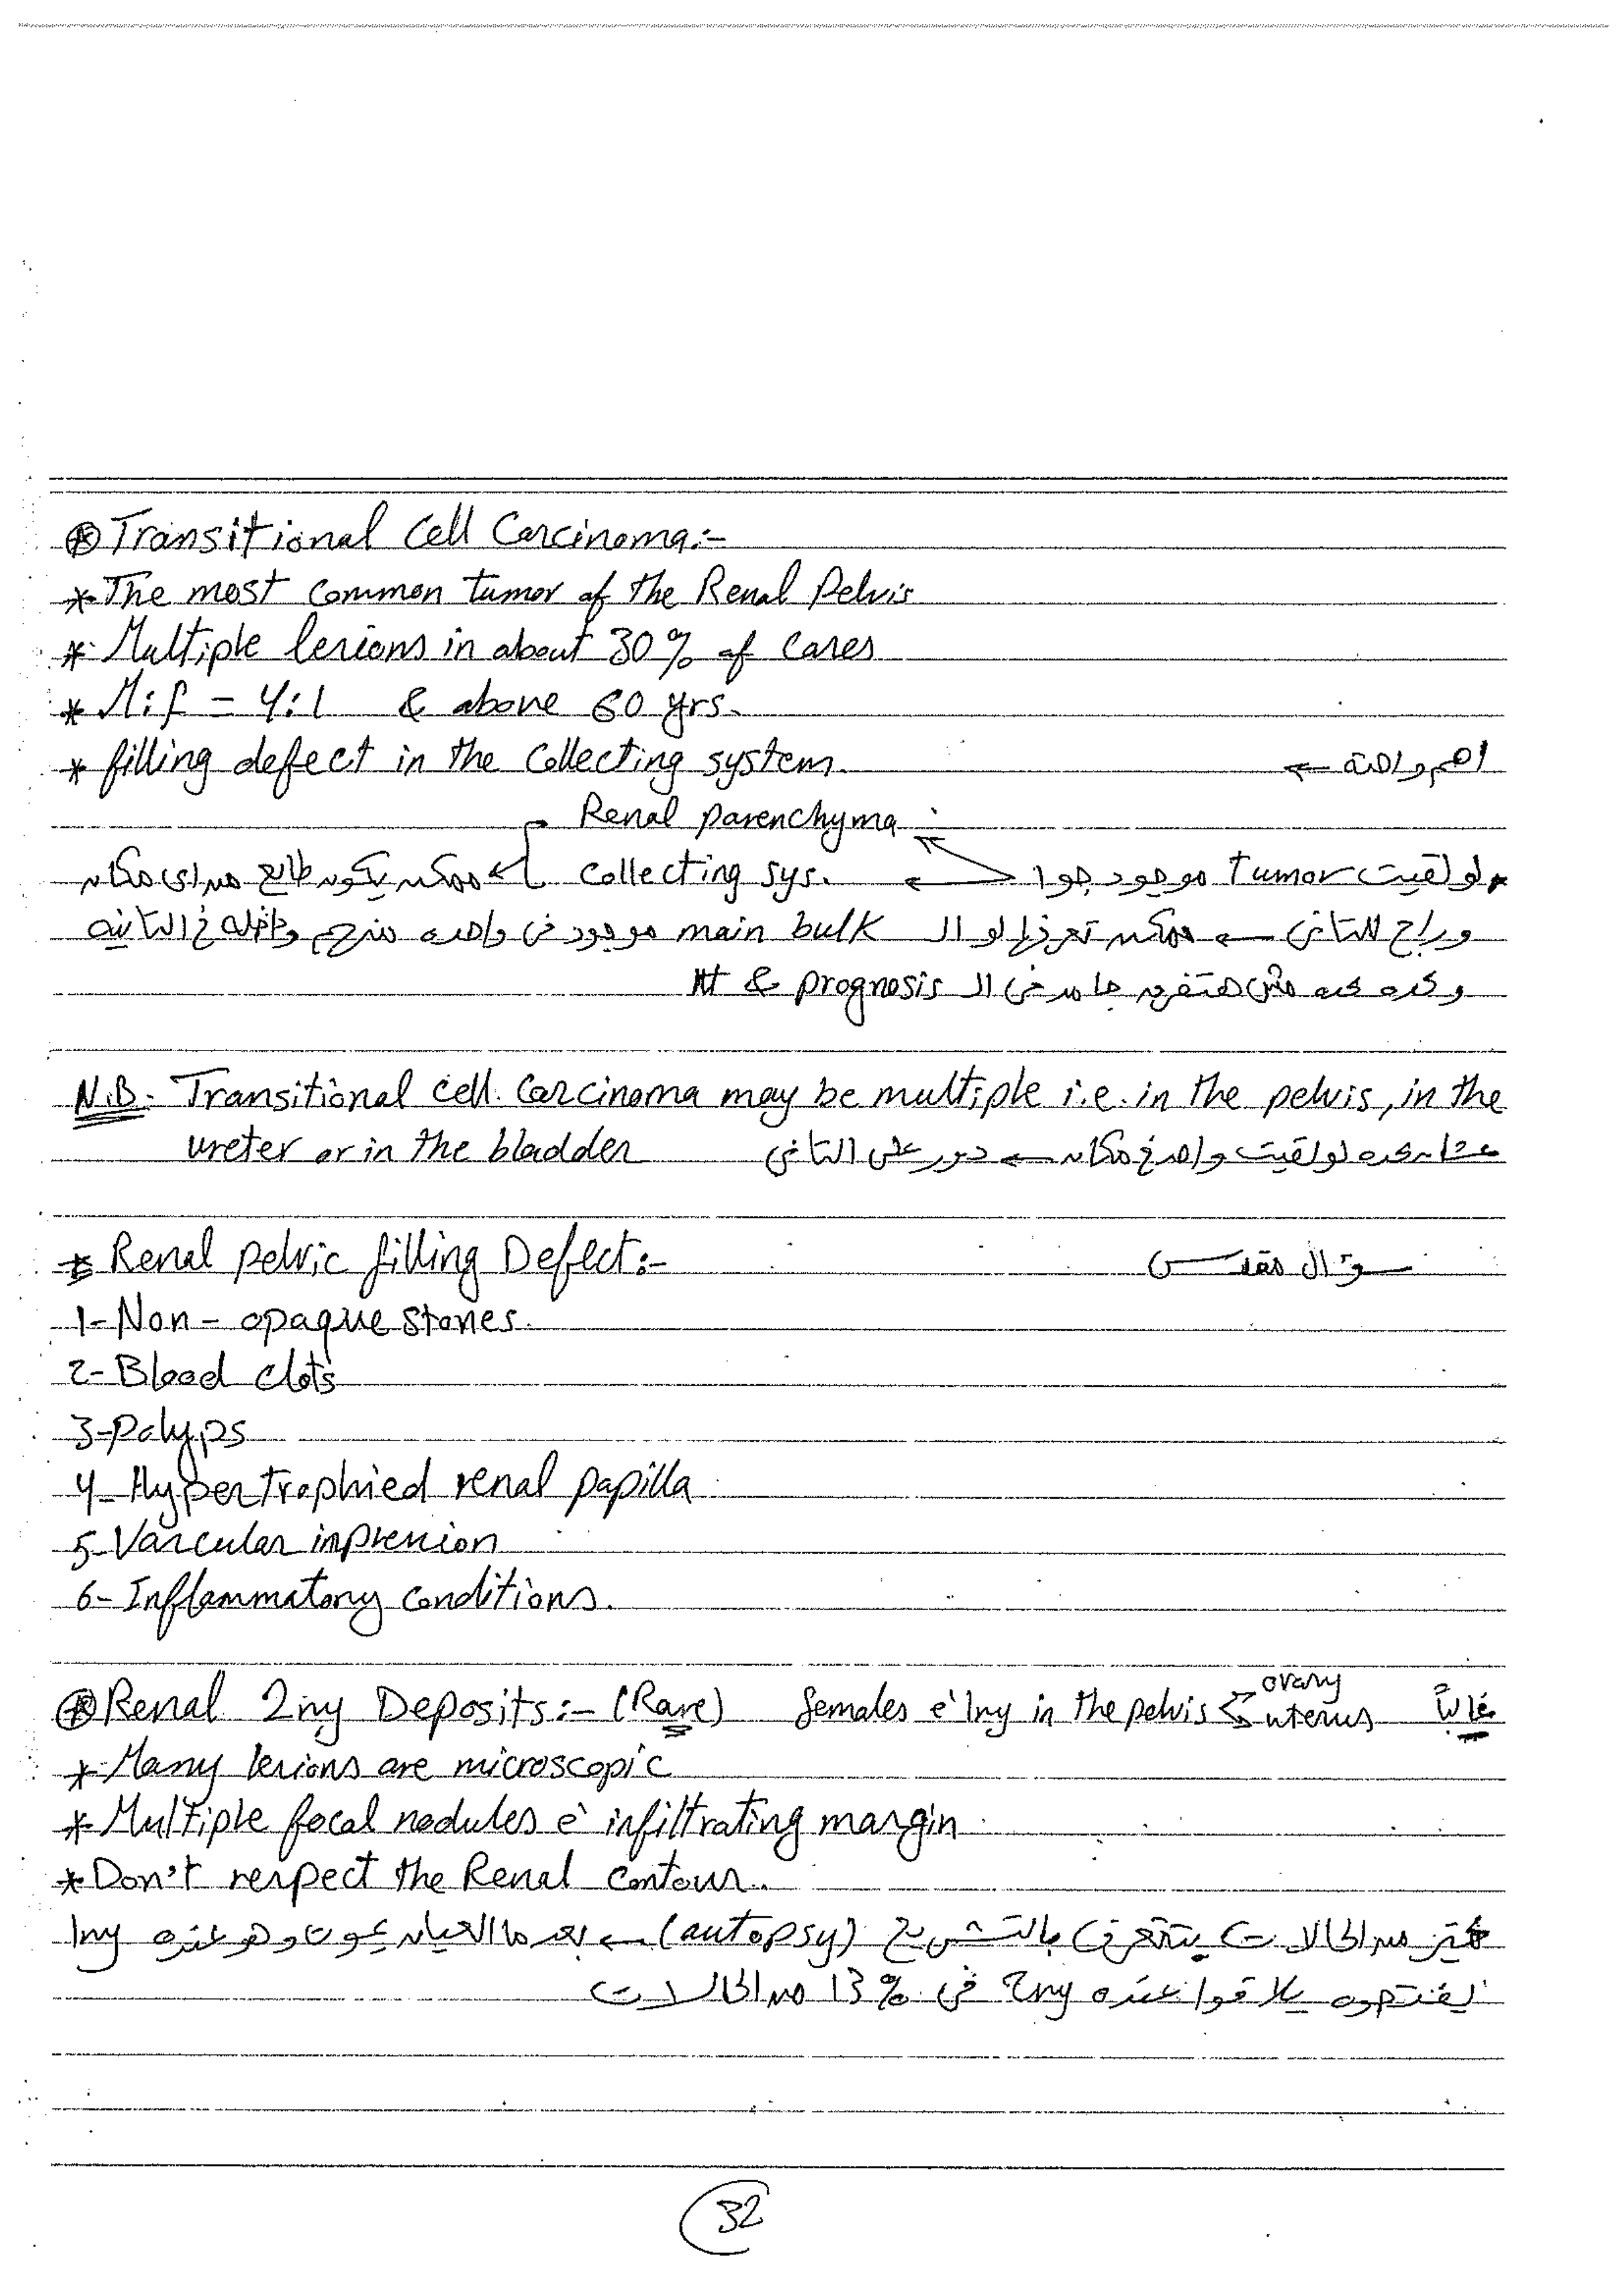 ⊛ Transitional Cell Carcinoma:-
* The most common tumor of the Renal Pelvis
* Multiple lesions in about 30% of cases
* M:f = 4:1 & above 60 yrs.
* filling defect in the collecting system ← اهم واحدة
Renal parenchyma
* لو لقيت tumor موجود جوا ← collecting sys. ← ممكن يكون طالع من اى مكان
وراح للتانى ← ممكن تعرفها لو ال main bulk موجود فى واحده منهم وداخله فى التانيه
وكده كده مش هتفرق جامد فى ال ttt & prognosis
N.B- Transitional cell carcinoma may be multiple i.e. in the pelvis, in the
ureter or in the bladder عشان كده لو لقيت واحد فى مكان ← دور على التانى
* Renal pelvic filling Defect:- سؤال مقدس
1- Non-opaque stones.
2- Blood clots
3- Polyps
4- Hypertrophied renal papilla
5- Vascular impression
6- Inflammatory conditions.
⊛ Renal 2ny Deposits:- (Rare) females è 1ny in the pelvis ovary uterus غالباً
* Many lesions are microscopic
* Multiple focal nodules è infiltrating margin
* Don't respect the Renal contour.
كتير من الحالات بتتعرف بالتشريح (autopsy) ← بعد ما العيان يموت وهو عنده 1ny
يفتحوه يلاقوا عنده 2ny فى 13% من الحالات
32